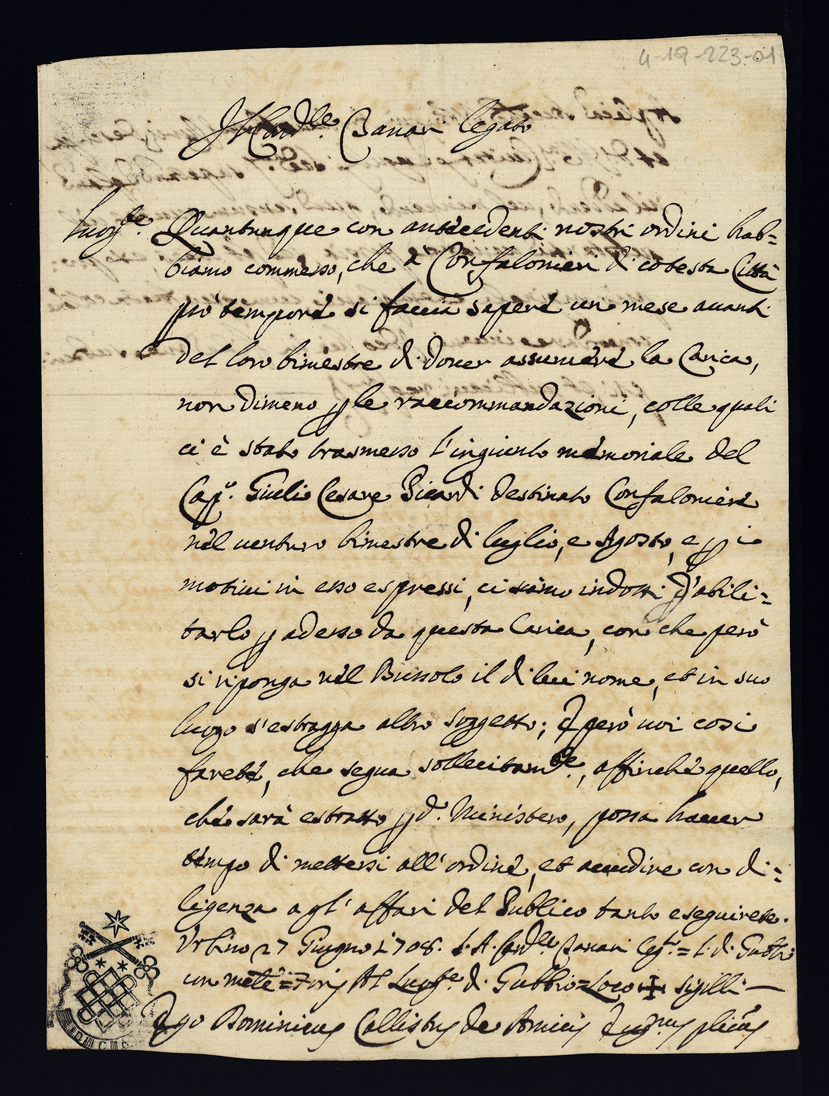 4-19-223-01
Il Card.le Banari legato
Luog.te Quantunque con antecedenti nostri ordini hab=
biamo commesso, che a Confalonieri di cotesta Città
pro tempore si faccia sapere un mese avanti
del loro bimestre di dover assumere la Carica,
non dimeno p le raccommandazioni, colle quali
ci è stato trasmesso l'ingiunto memoriale del
Cap.o Giulio Cesare Picardi destinato Confaloniere
nel venturo bimestre di luglio, e Agosto, e p i
motivi in esso espressi, ci siamo indotti d'abili=
tarlo p adesso da questa Carica, con che però
si riponga nel Bussolo il di lui nome, et in suo
luogo s'estragga altro soggetto; E però voi così
farete, che segua sollecitam.te, affinche quello,
che sarà estratto p d.o Ministero, possa haver
tempo di mettersi all'ordine, et accudire con di=
ligenza agl'affari del Publico tanto eseguirete.
Urbino 27 Giugno 1708. Card.le Banari leg.o =
Al Luog.te di Gubbio = Loco + Sigilli
Ego Dominicus Callistus de Amicis